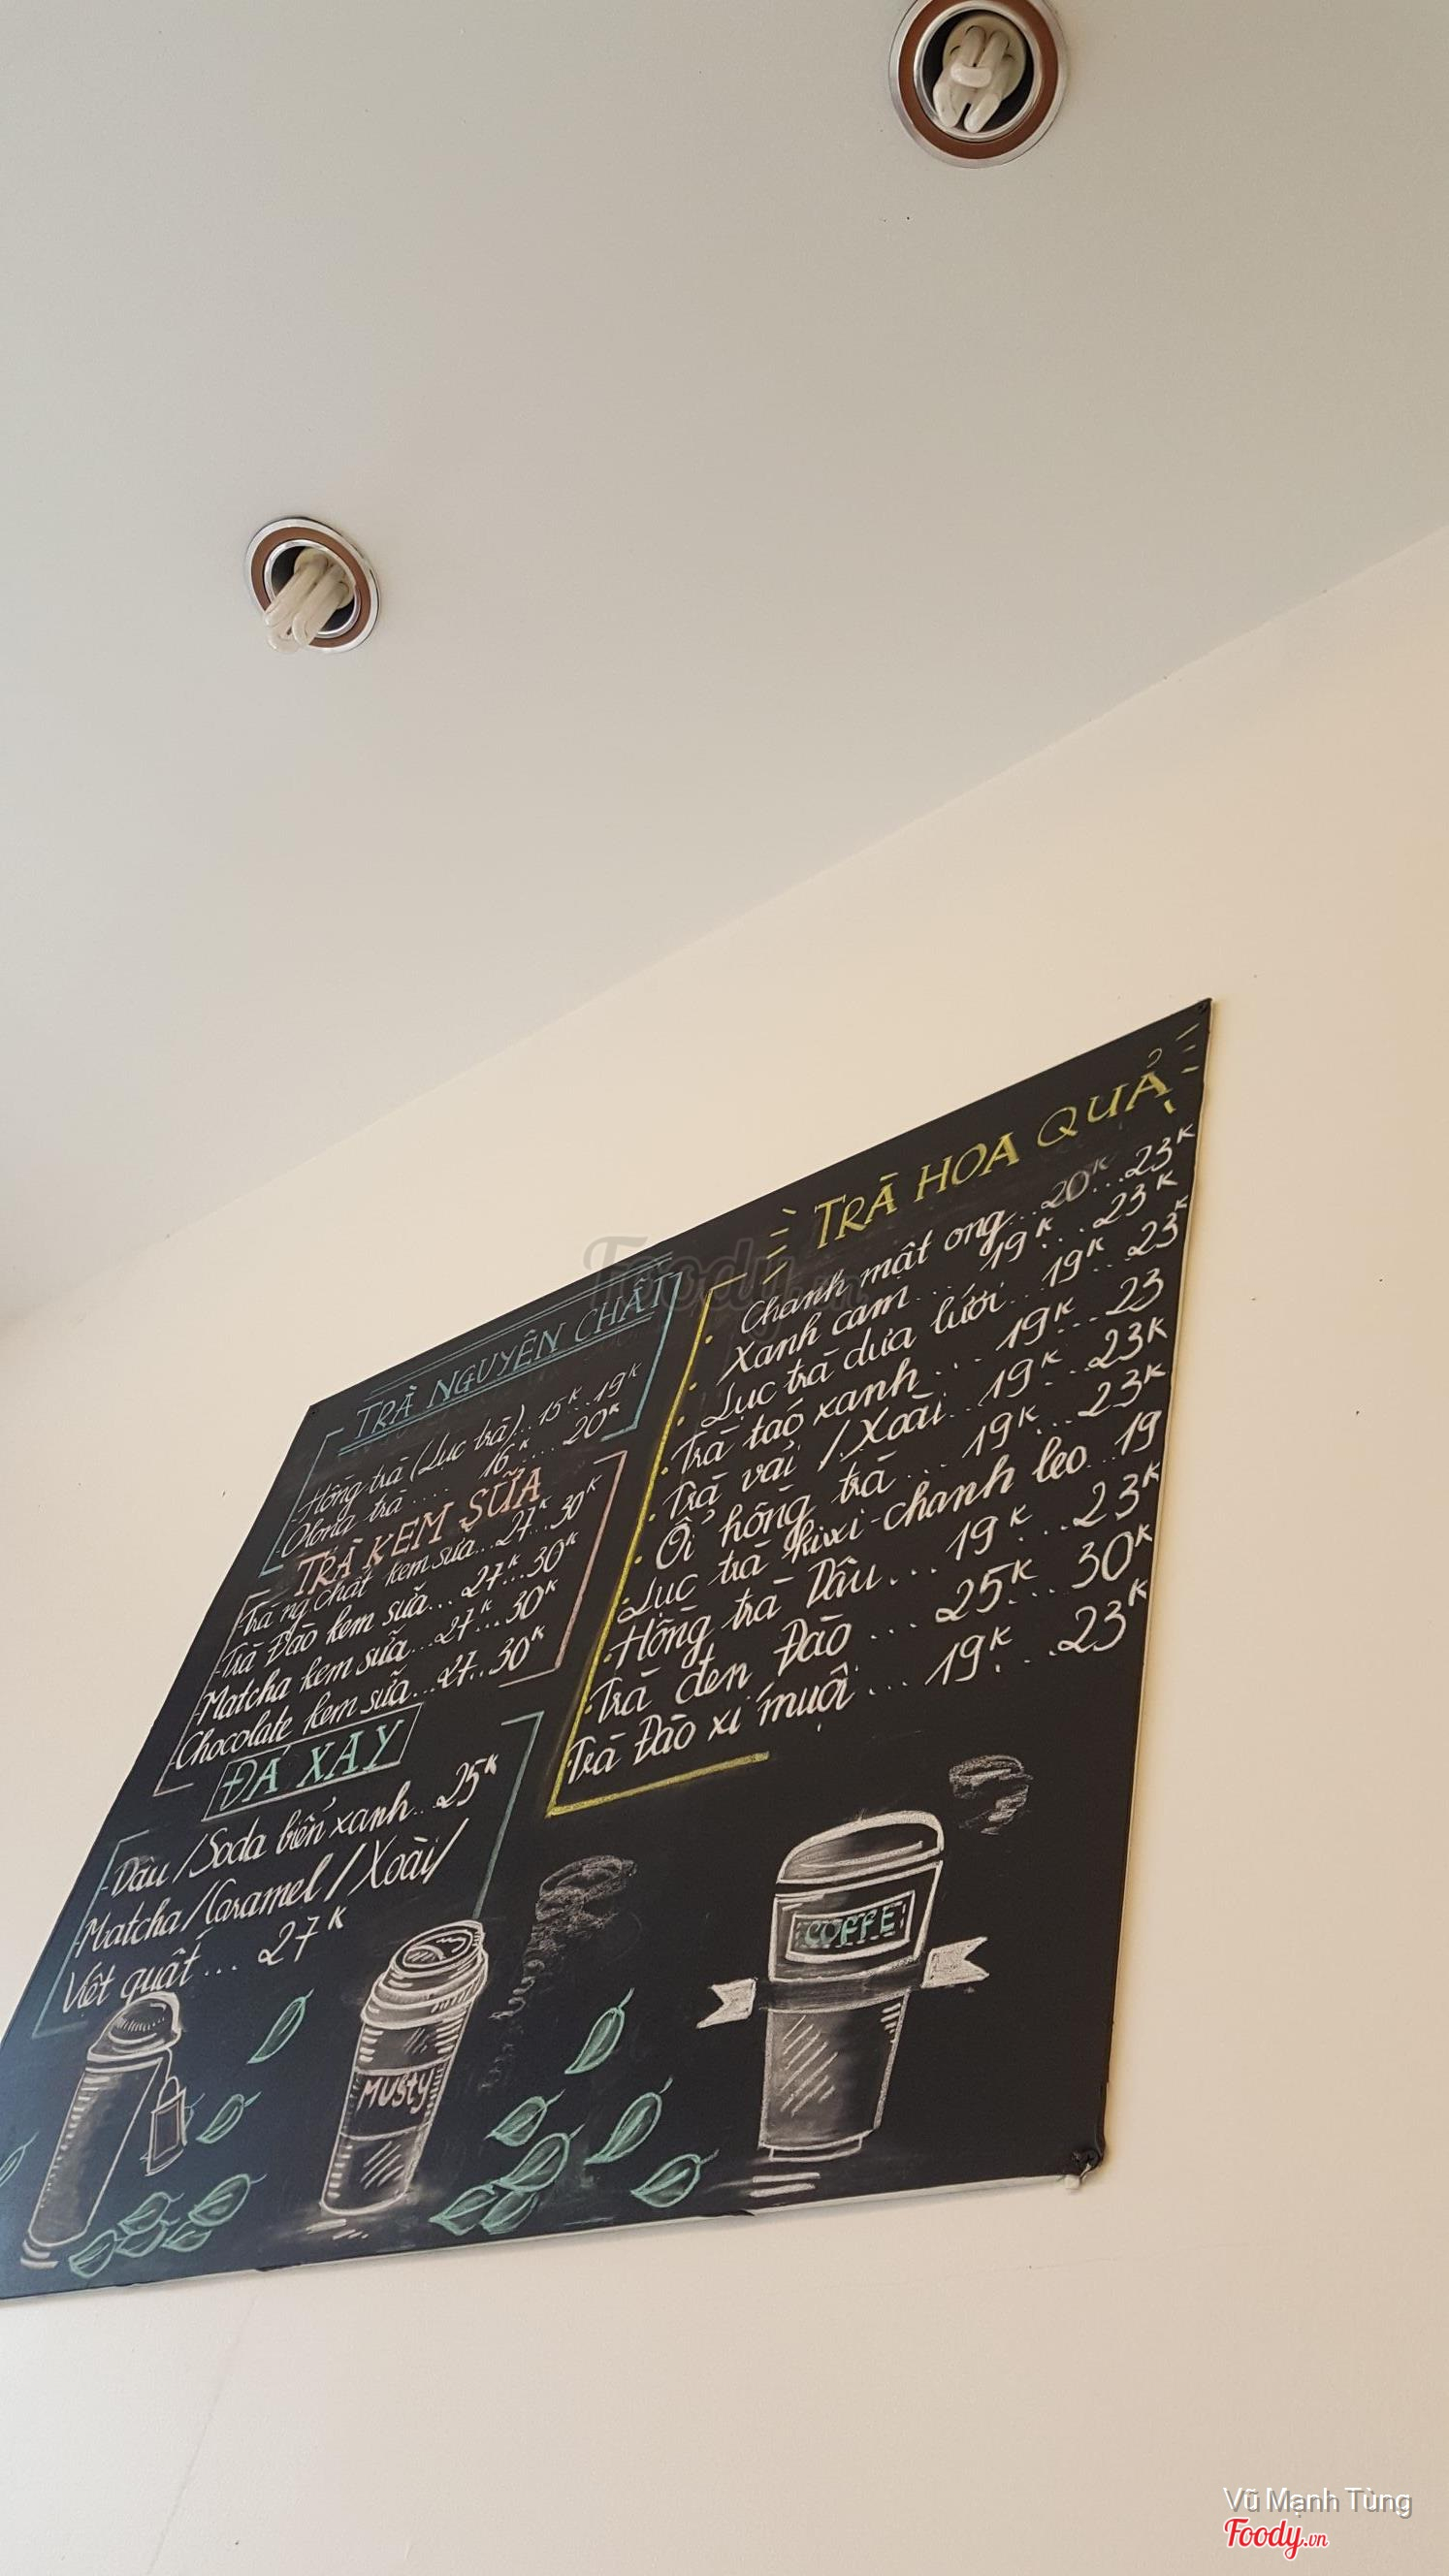 TRÀ NGUYÊN CHẤT
Hồng trà (Lục trà)..15K..19K
Olona trà.... 16K.... 20K
TRÀ KEM SỮA
-Trà ng chất kem sữa...27K...30K
-Trà Đào kem sữa... 27K...30K
-Matcha kem sữa...27K...30K
-Chocolate kem sữa...27..30K
ĐÁ XAY
-Dâu /Soda biển xanh..25K
-Matcha/Caramel/Xoài/
Việt quất... 27K
TRÀ HOA QUẢ
. Chanh mật ong...20K...23K
. Xanh cam... 19K.... 23K
. Lục trà dưa lưới.. 19K... 23K
. Trà taó xanh... 19K... 23
. Trà vải /Xoài.. 19K... 23K
. Ổi hồng trà... 19K... 23K
. Lục trà kiwi-chanh leo 19
. Hồng trà Dâu... 19K...23K
. Trà đen Đào... 25K... 30K
. Trà Đào xí muội... 19K...23K
MUSTY
COFFE
Foody.vn
Vũ Mạnh Tùng
Foody.vn